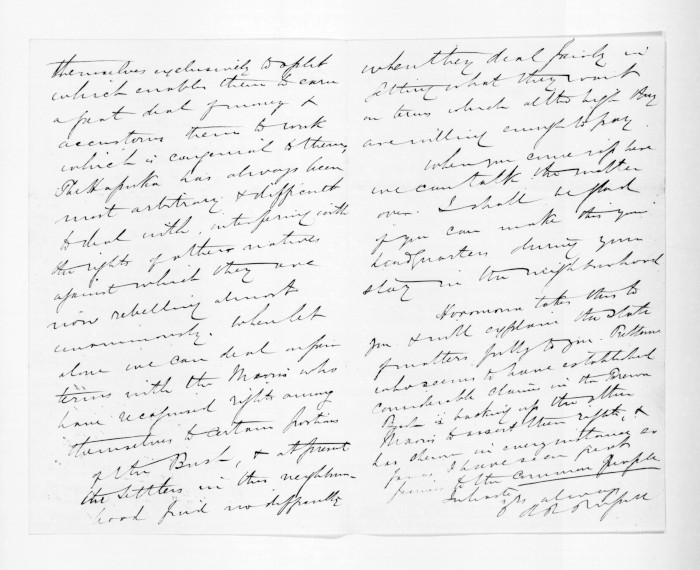 themselves exclusively to split
which enables them to earn
a fair deal of money &
accustoms them to work
which is congenial to them
Te Hapuku has always been
most arbitrary & difficult
to deal with, interfering with
the rights of other natives
against which they are
now rebelling almost
unanimously. When let
alone we can deal upon
terms with the Maoris who
have recognised rights among
themselves to certain portions
of the Bush, & at present
the settlers in this neighbour-
hood find no difficulty
when they deal fairly in
getting what they want
on terms which altho high they
are willing enough to pay.
When you come up here
we can talk the matter
over. I shall be glad
if you can make this your
headquarters during your
stay in the neighbourhood
Horomona takes this to
you & will explain the state
of matters fully to you.
who seems to have established
considerable claims in the
Bush is backing up the other
Maoris to assert their rights, &
has shewn in every instance so
far as I have seen great
to the common people
Yrs always
H R Russell